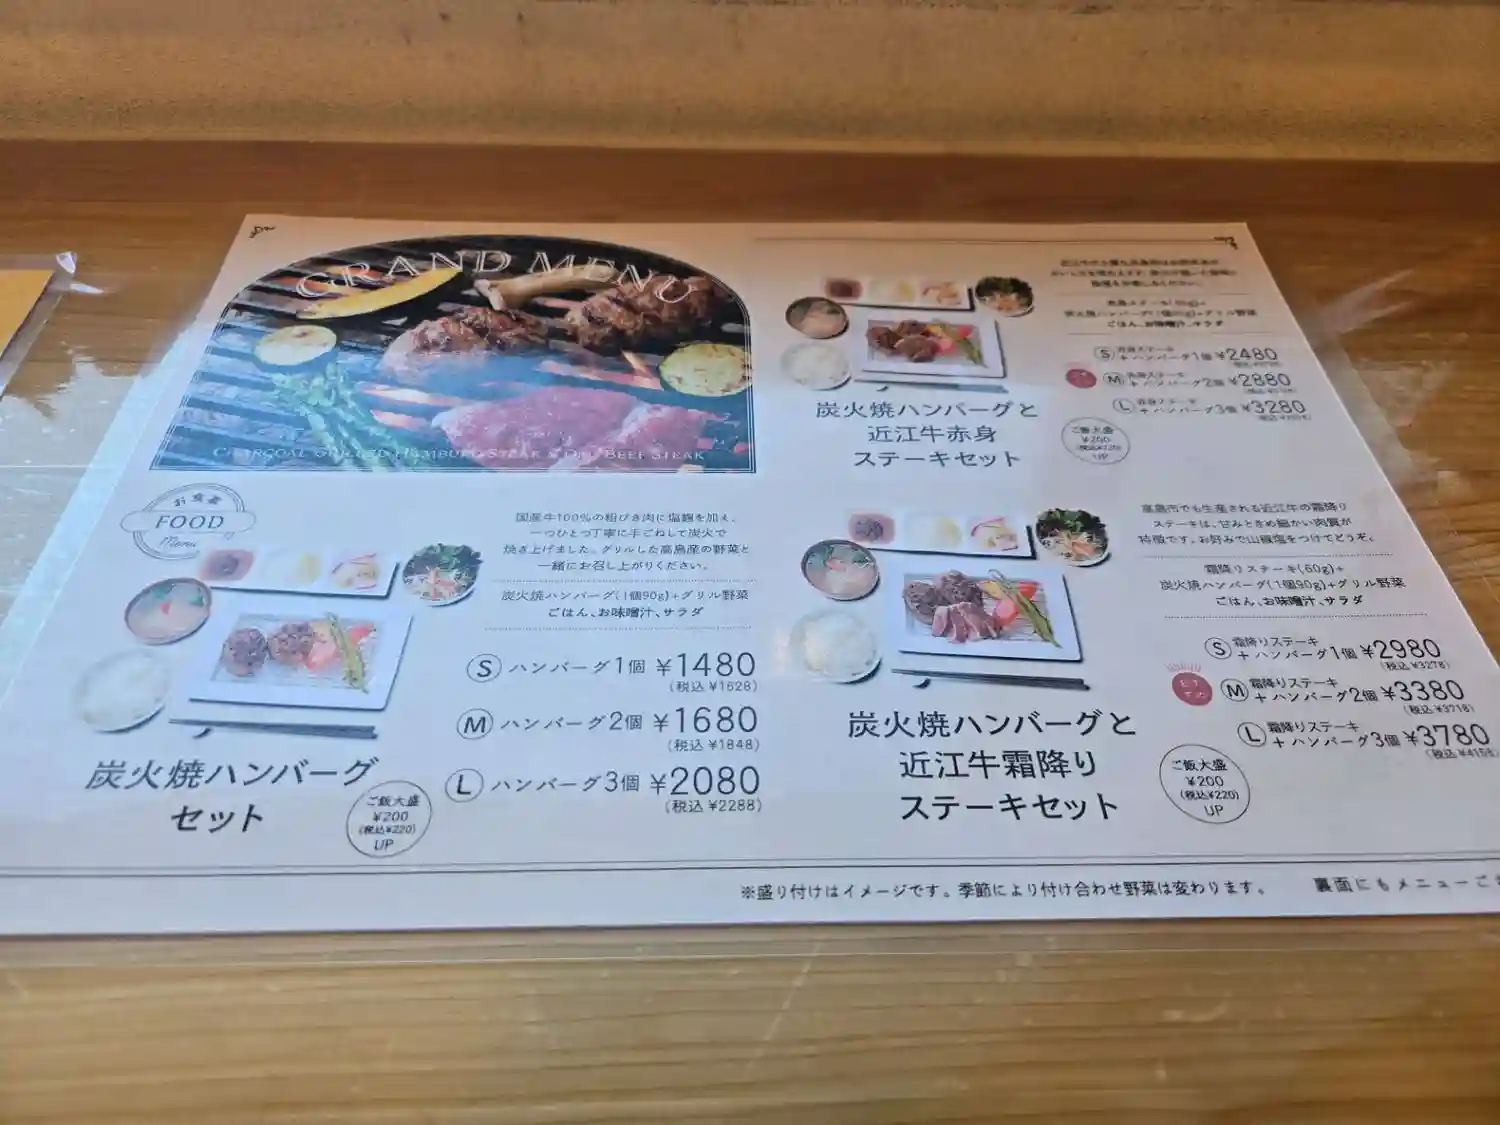 GRAND MENU
CHARCOAL GRILLED HAMBURG STEAK & OMI BEEF STEAK
お食事
FOOD
Menu
国産牛100%の粗びき肉に塩麹を加え、
一つひとつ丁寧に手ごねして炭火で
焼き上げました。グリルした高島産の野菜と
一緒にお召し上がりください。
炭火焼ハンバーグ(1個90g)+グリル野菜
ごはん、お味噌汁、サラダ
S ハンバーグ1個 ¥1480
(税込 ¥1628)
M ハンバーグ2個 ¥1680
(税込 ¥1848)
L ハンバーグ3個 ¥2080
(税込 ¥2288)
炭火焼ハンバーグ
セット
ご飯大盛
¥200
(税込¥220)
UP
炭火焼ハンバーグ(1個90g)+グリル野菜
ごはん、お味噌汁、サラダ
S 赤身ステーキ
+ハンバーグ1個 ¥2480
M 赤身ステーキ
+ハンバーグ2個 ¥2880
L 赤身ステーキ
+ハンバーグ3個 ¥3280
炭火焼ハンバーグと
近江牛赤身
ステーキセット
ご飯大盛
¥200
(税込¥220)
UP
高島市でも生産される近江牛の霜降り
ステーキは、甘みときめ細かい肉質が
特徴です。お好みで山椒塩をつけてどうぞ。
霜降りステーキ(60g)+
炭火焼ハンバーグ(1個90g)+グリル野菜
ごはん、お味噌汁、サラダ
S 霜降りステーキ
+ハンバーグ1個 ¥2980
(税込 ¥3278)
M 霜降りステーキ
+ハンバーグ2個 ¥3380
(税込 ¥3718)
L 霜降りステーキ
+ハンバーグ3個 ¥3780
(税込 ¥4158)
炭火焼ハンバーグと
近江牛霜降り
ステーキセット
ご飯大盛
¥200
(税込¥220)
UP
※盛り付けはイメージです。季節により付け合わせ野菜は変わります。
裏面にもメニューござ